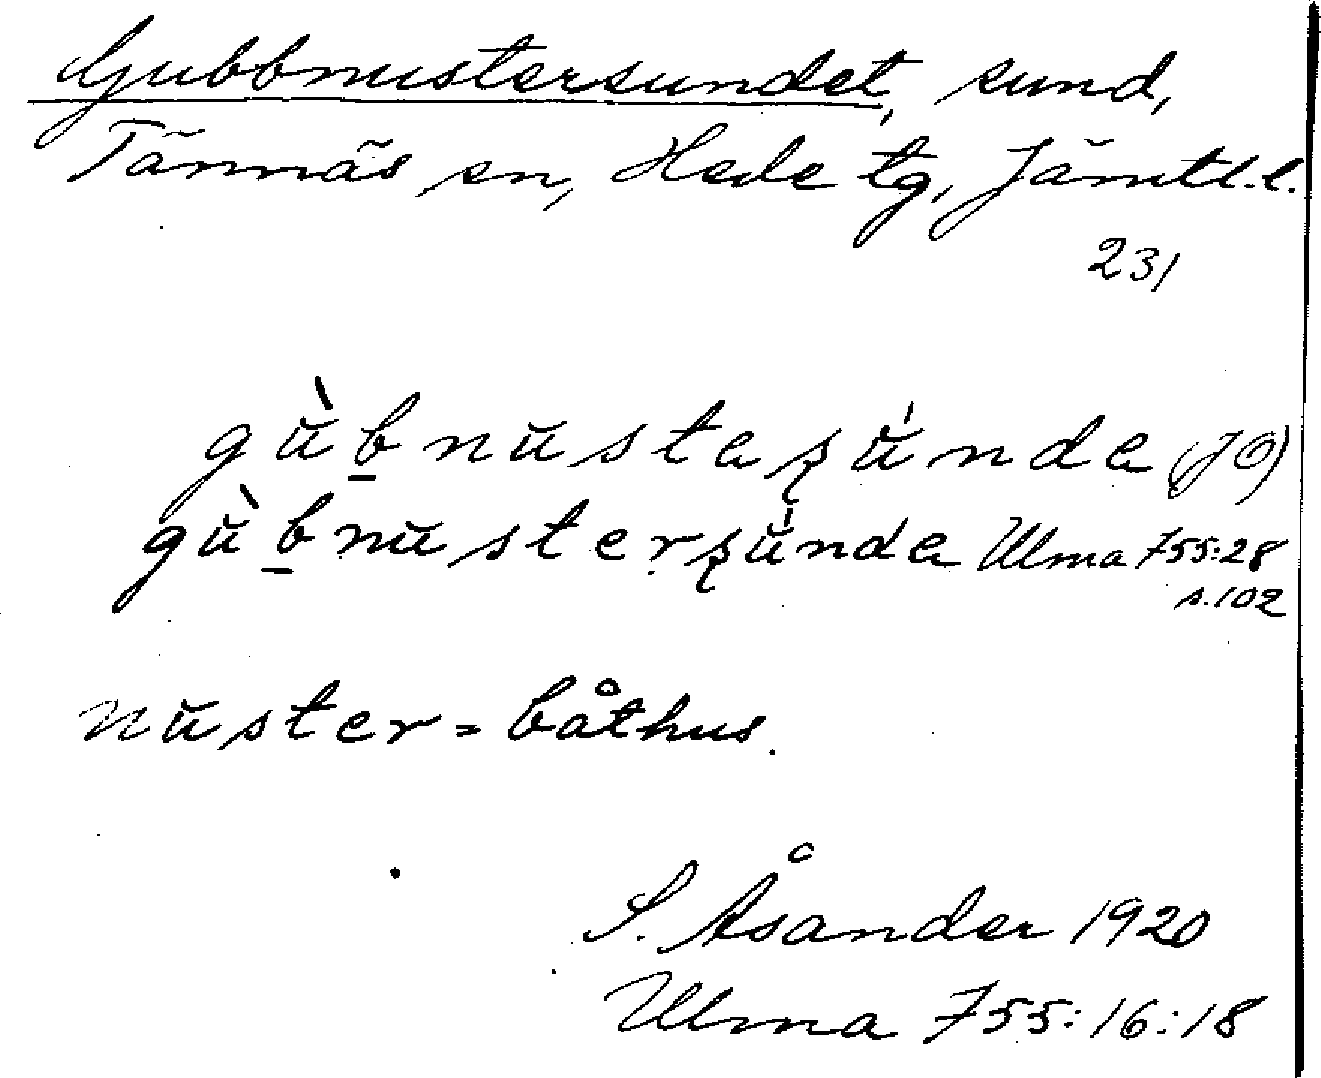 Gubbnustersundet, sund,
Tännäs sn, Hede tg, Jämtl.l.
231
gǜb̲nŭstaʂŭ́nda (JO)
gǜb̲nŭsterʂŭ́nda Ulma 755:28
s. 102
nŭster = båthus.
S. Åsander 1920
Ulma 755:16:18